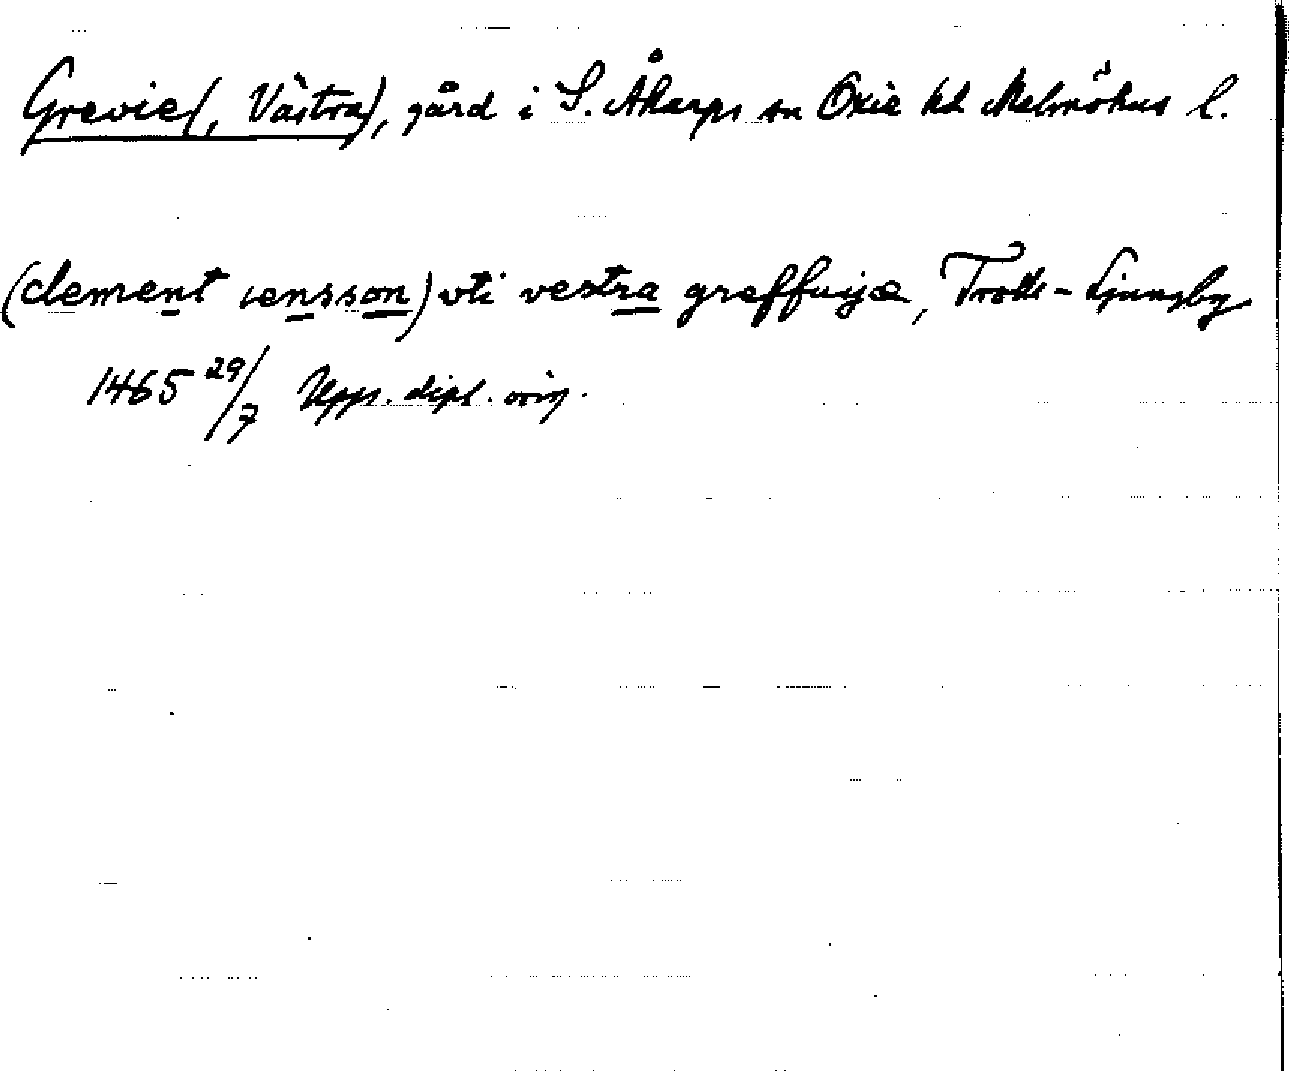 Grevie(, Västra), gård i S. Åkarps sn Oxie hd Malmöhus l.
(clement iensson) vti vestra greffuijæ, Trolle-Ljungby
1465 29/7 Upps. dipl. orig.